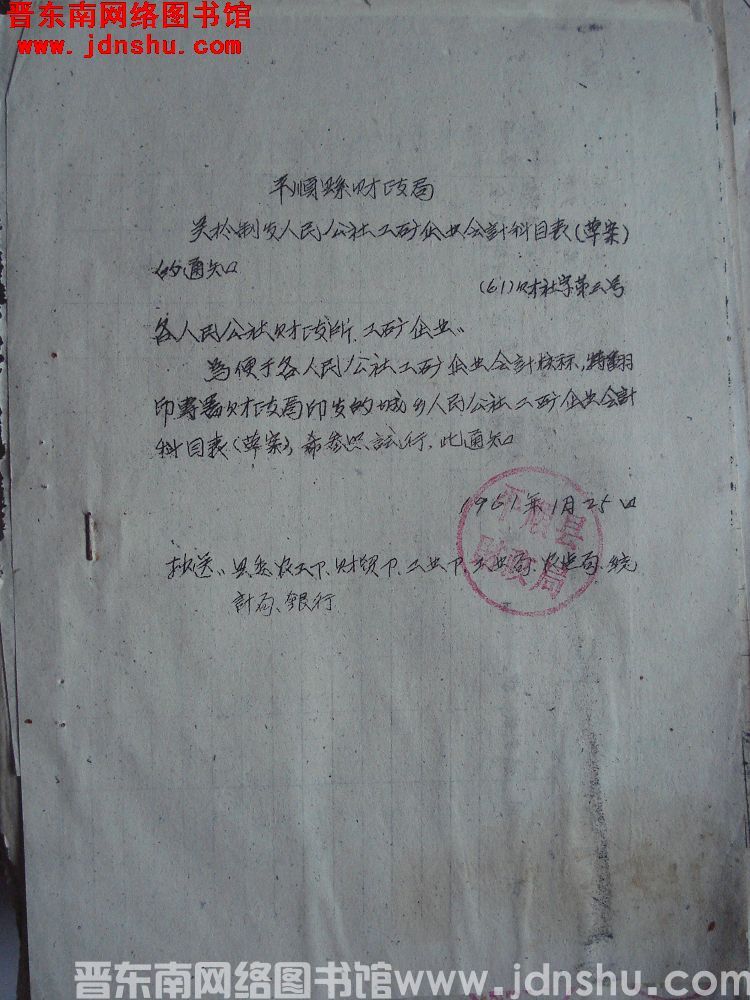 晋东南网络图书馆
www.jdnshu.com
平顺县财政局
关於制发人民公社工矿企业会計科目表(草案)
的通知
(61)财社字第五号
各人民公社财政所、工矿企业:
為便于各人民公社工矿企业会計核标,特翻
印寿春财政局印发的城乡人民公社工矿企业会計
科目表(草案),希参照試行,此通知
1961年1月25日
平顺县
财政局
抄送:县委农工卩、财贸卩、工业卩、工业局、农业局、统
計局、银行
晋东南网络图书馆www.jdnshu.com